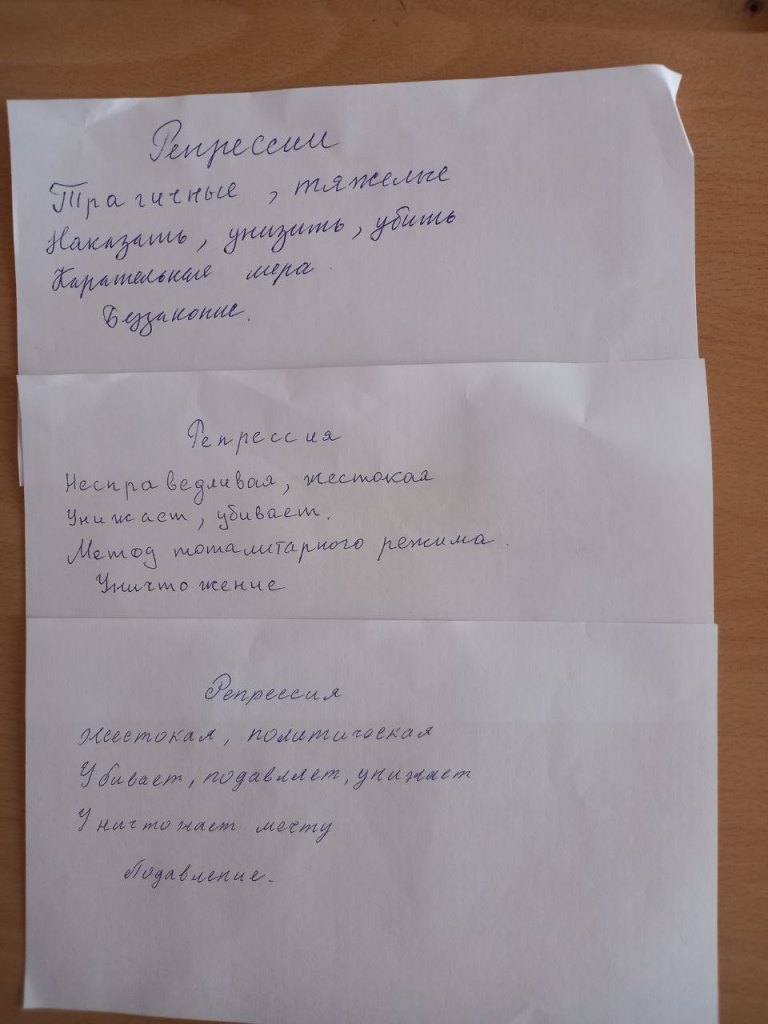 Репрессии
Трагичные, тяжелые
Наказать, унизить, убить
Карательная мера.
Беззаконие.
Репрессия
Несправедливая, жестокая
Унижает, убивает.
Метод тоталитарного режима.
Уничтожение
Репрессия
Жестокая, политическая
Убивает, подавляет, унижает
Уничтожает мечту
Подавление.